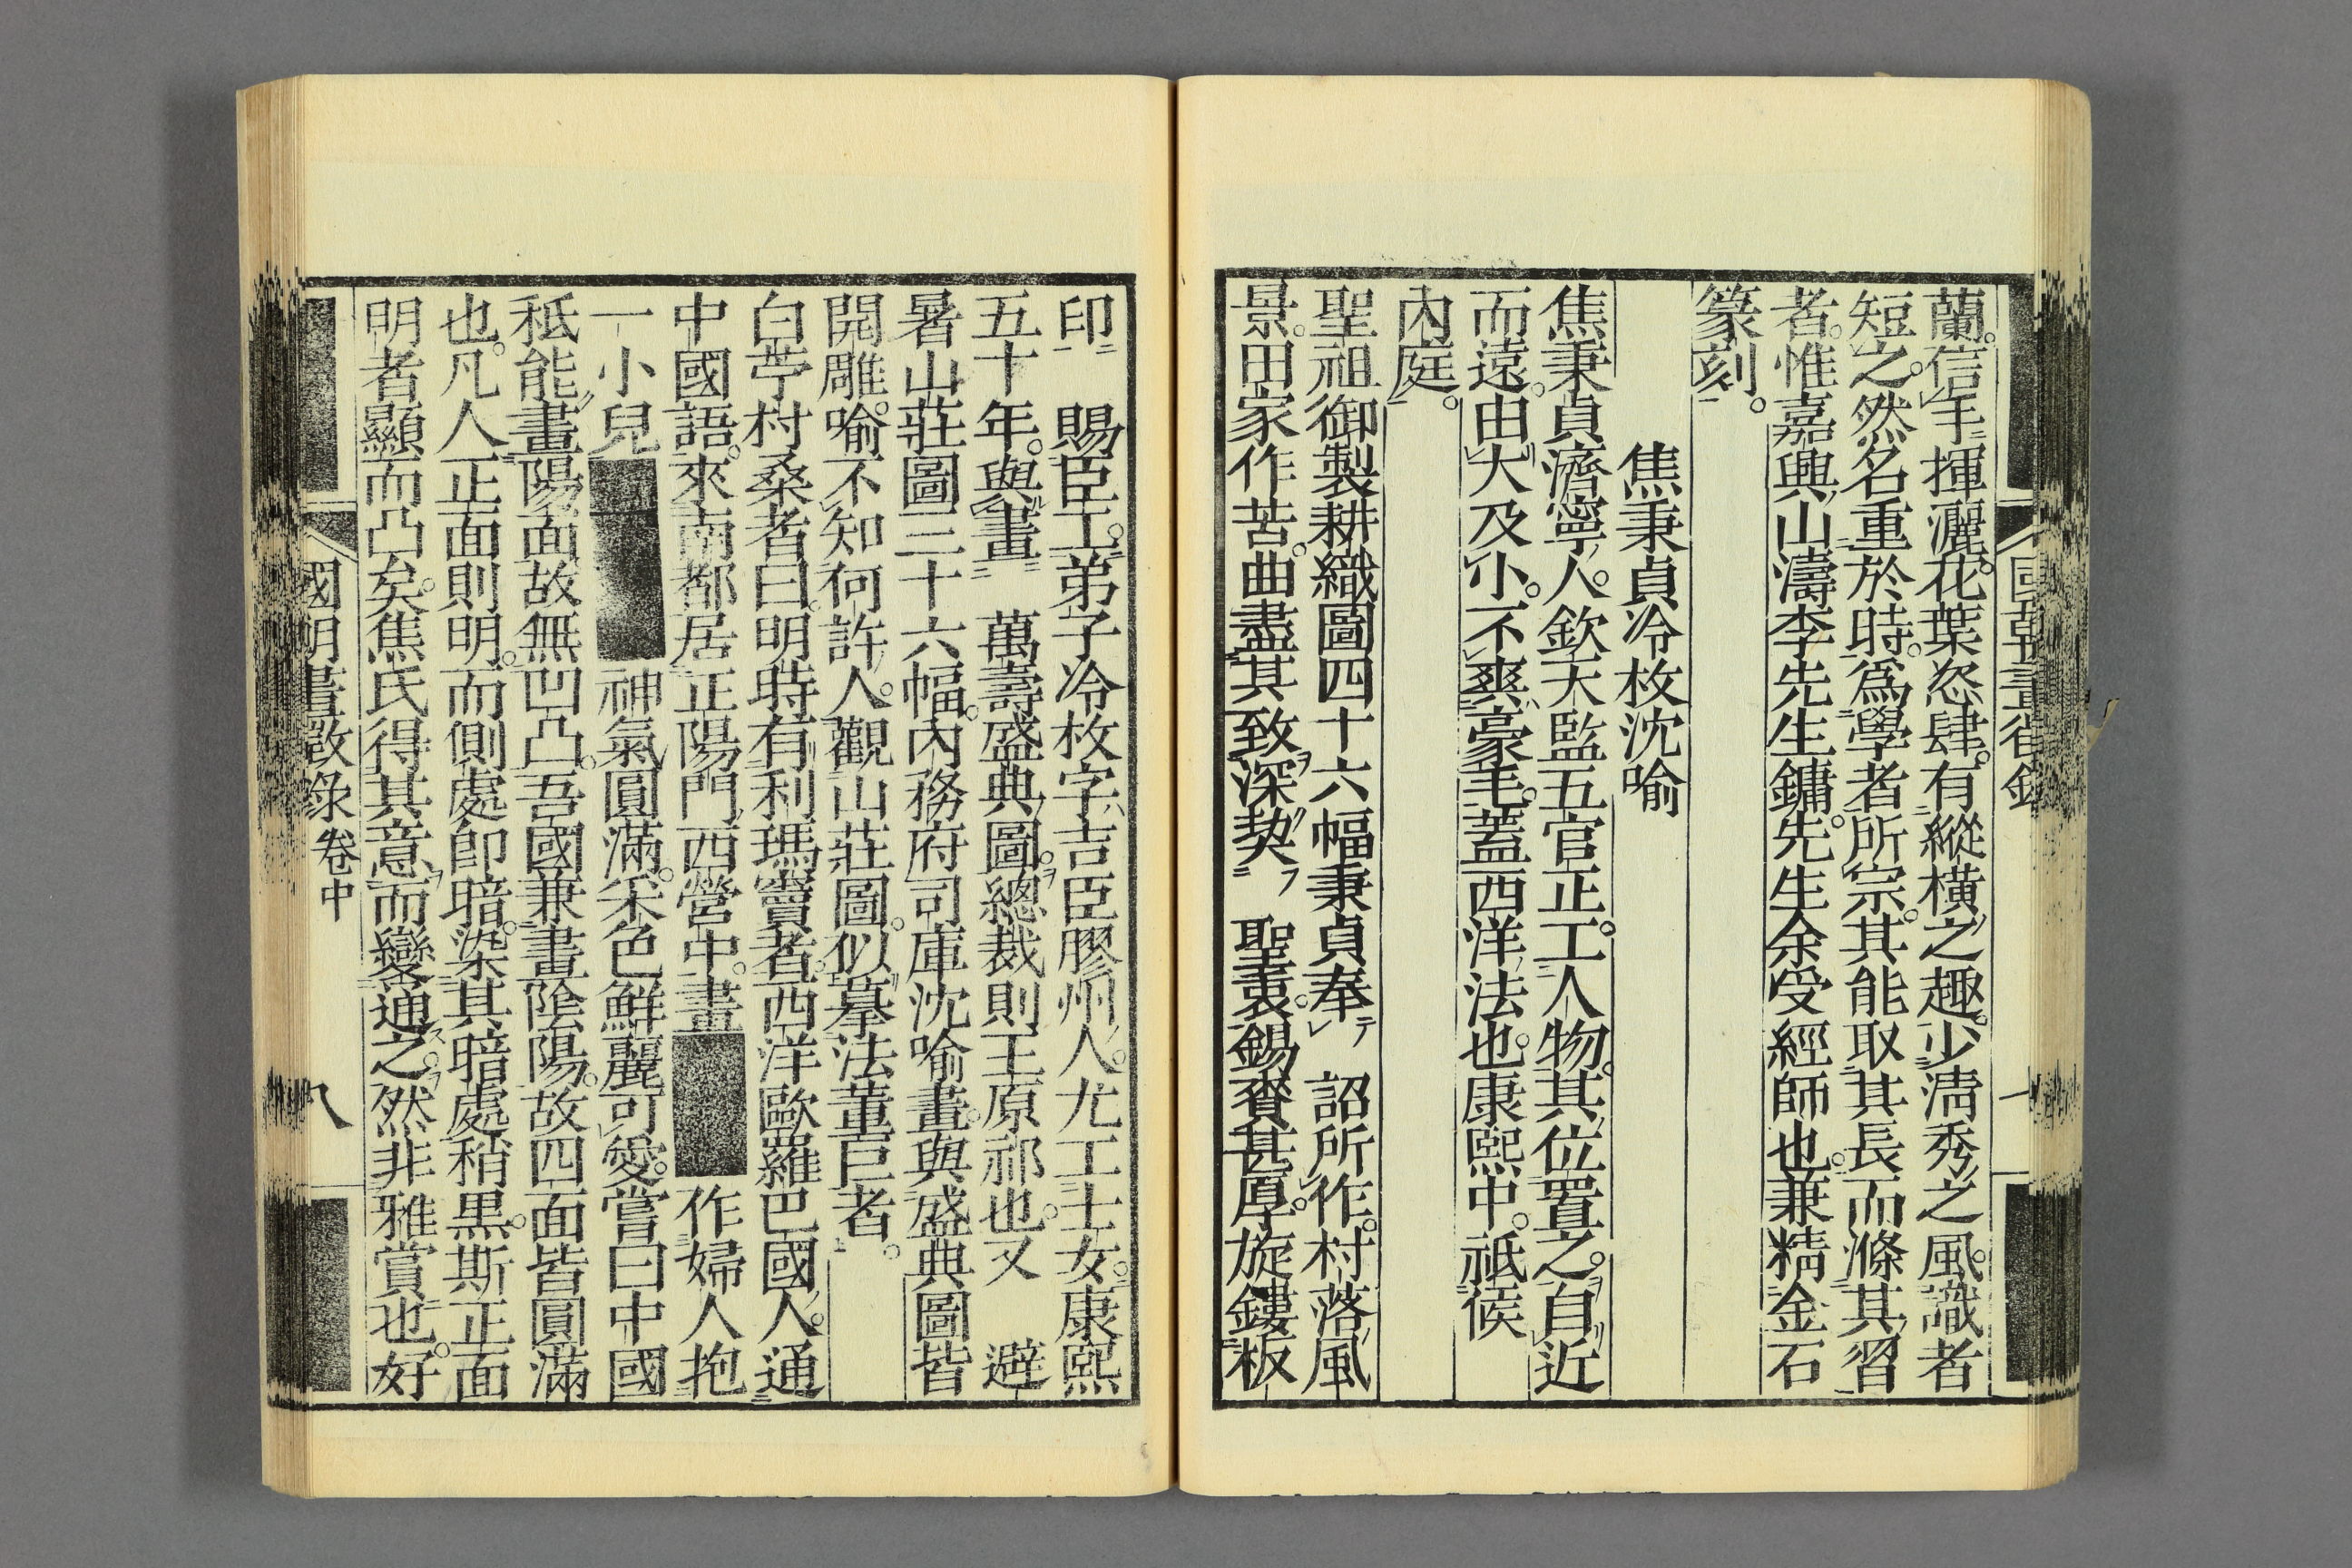 蘭。信手揮灑。花葉恣肆。有縱橫之趣。少淸秀之風。識者
短之。然名重於時。爲學者所宗。其能取其長而滌其習
者。惟嘉興山濤李先生鏞。先生余受經師也。兼精金石
篆刻。
焦秉貞冷枚沈喻
焦秉貞濟寧人。欽天監五官正。工人物。其位置之。自近
而遠。由大及小。不爽豪毛。蓋西洋法也。康熙中。祗候
內庭。
聖祖御製耕織圖四十六幅秉貞奉 詔所作。村落風
景。田家作苦。曲盡其致深契 聖衷。錫賚甚厚。旋鏤板
印 賜臣工。弟子冷枚字吉臣膠州人。尤工士女。康熙
五十年。與畫 萬壽盛典圖。總裁則王原祁也。又 避
暑山莊圖三十六幅。內務府司庫沈喻畫。與盛典圖皆
開雕。喻不知何許人。觀山莊圖。似摹法董巨者。
白苧村桑者曰。明時有利瑪竇者。西洋歐羅巴國人。通
中國語。來南都居正陽門西營中。畫 作婦人抱
一小兒 神氣圓滿。采色鮮麗可愛。嘗曰中國
秪能畫陽面故無凹凸。吾國兼畫陰陽。故四面皆圓滿
也。凡人正面則明。而側處卽暗。染其暗處稍黑。斯正面
明者顯而凸矣。焦氏得其意而變通之。然非雅賞也。好
卷中
八